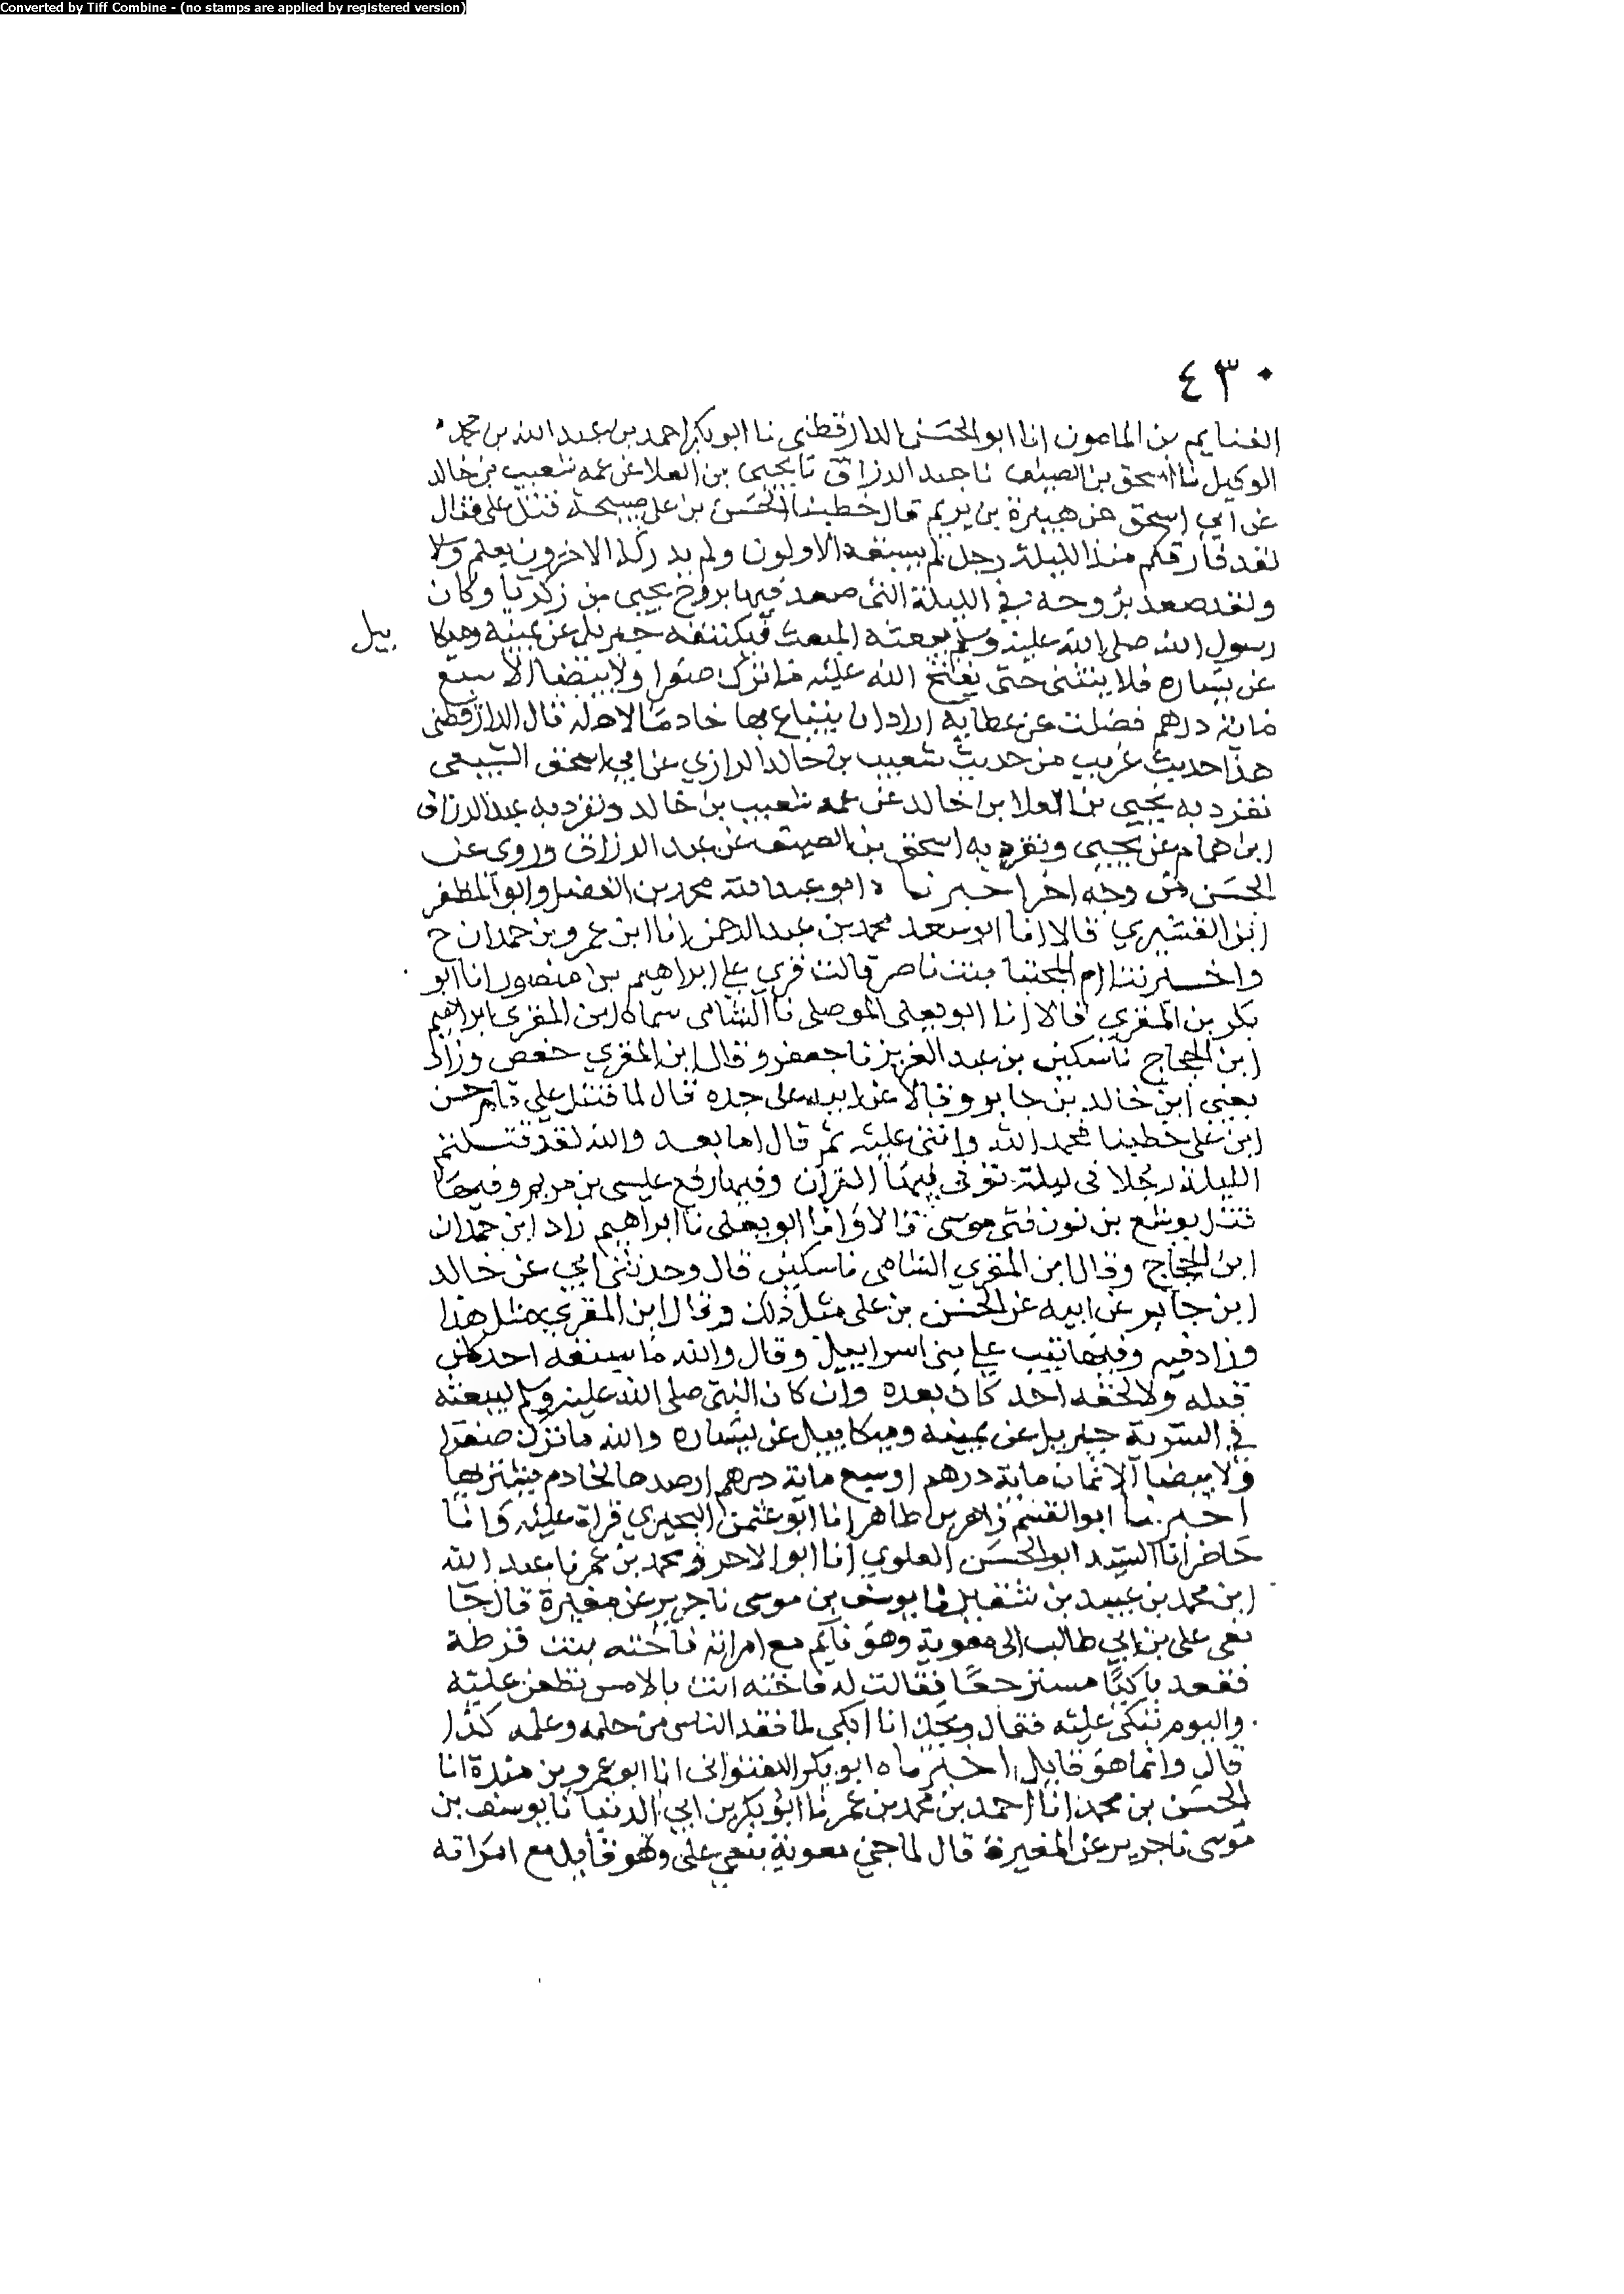 Converted by Tiff Combine - (no stamps are applied by registered version)
٤٣٠
الغنايم بن المامون انا ابو الحسن الدارقطني نا ابو بكر احمد بن عبد الله بن محمد
الوكيل نا اسحق بن الضيف نا عبد الرزاق نا يحيى بن العلا عن عمه شعيب بن خالد
عن ابي اسحق عن هبيرة بن يريم قال خطبنا الحسن بن علي صبيحة قتل علي فقال
لقد فارقكم منذ الليلة رجل لم يسبقه الاولون ولم يدركه الاخرون بعلم ولا
ولقد صعد بروحه في الليلة التي صعد فيها بروح يحيى بن زكريا وكان
رسول الله صلى الله عليه وسلم يبعثه المبعث فيكتنفه جبريل عن يمينه وميكا ييل
عن يساره فلا ينثني حتى يفتح الله عليه ما ترك صفرا ولا بيضا الا سبع
ماية درهم فضلت عن عطايه اراد ان يبتاع بها خادما لاهله قال الدارقطني
هذا حديث غريب من حديث شعيب بن خالد الرازي عن ابي اسحق السبيعي
تفرد به يحيى بن العلا بن خالد عن عمه شعيب بن خالد وتفرد به عبد الرزاق
ابن همام عن يحيى وتفرد به اسحق بن الضيف عن عبد الرزاق وروي عن
الحسن من وجه اخر اخبرنا ه ابو عبد الله محمد بن الفضل وابو المظفر
ابن القشيري قالا انا ابو سعد محمد بن عبد الرحمن انا ابن عمرو بن حمدان ح
واخبرتنا ام المجتبا بنت ناصر قالت قري علي ابراهيم بن منصور انا ابو
بكر بن المقري قالا انا ابو يعلى الموصلي نا الشامي سماه ابن المقري ابراهيم
ابن الحجاج نا سكين بن عبد العزيز نا جعفر وقال ابن المقري حفص وزاد
يعني ابن خالد بن جابر وقالا عن ابيه على جده قال لما قتل علي قام حسن
ابن علي خطيبا فحمد الله واثنى عليه ثم قال اما بعد والله لقد قتلتم
الليلة رجلا في ليلة فيها القران وفيها رفع عيسى بن مريم وفيها
قتل يوشع بن نون فتى موسى قالا وانا ابو يعلى نا ابراهيم زاد ابن حمدان
ابن الحجاج وقال ابن المقري الشامي نا سكين قال وحدثني ابي عن خالد
ابن جابر عن ابيه عن الحسن بن علي مثل ذلك وقال ابن المقري بمثل هذا
وزاد فيه وفيها تيب علي بني اسراييل وقال والله ما سبقه احد كان
قبله ولا لحقه احد كان بعده وان كان النبي صلى الله عليه وسلم ليبعثه
في السرية جبريل عن يمينه وميكاييل عن يساره والله ما ترك صفرا
ولا بيضا الا ثمان ماية درهم او سبع ماية درهم ارصدها لخادم يشتريها
اخبرنا ابو القسم زاهر بن طاهر انا ابو عثمن البحيري قراة عليه وانا
حاضر انا السيد ابو الحسن العلوي انا ابو الاحرز محمد بن عمر نا عبد الله
ابن محمد بن عبيد بن نا يوسف بن موسى نا جرير عن مغيرة قال جا
نعي علي بن ابي طالب الى معوية وهو نايم مع امراته فاخته بنت قرظة
فقعد باكيا مسترجعا فقالت له فاخته انت بالامس تطعن عليه
واليوم تبكي عليه فقال ويحك انا ابكي لما فقد الناس من حلمه وعلمه كذا
قال وانما هو قايل اخبرناه ابو بكر اللفتواني انا ابو عمرو بن مندة انا
الحسن بن محمد انا احمد بن محمد بن عمر نا ابو بكر بن ابي الدنيا نا يوسف بن
موسى نا جرير عن المغيرة قال لما جي معوية بنعي علي وهو قايل مع امراته